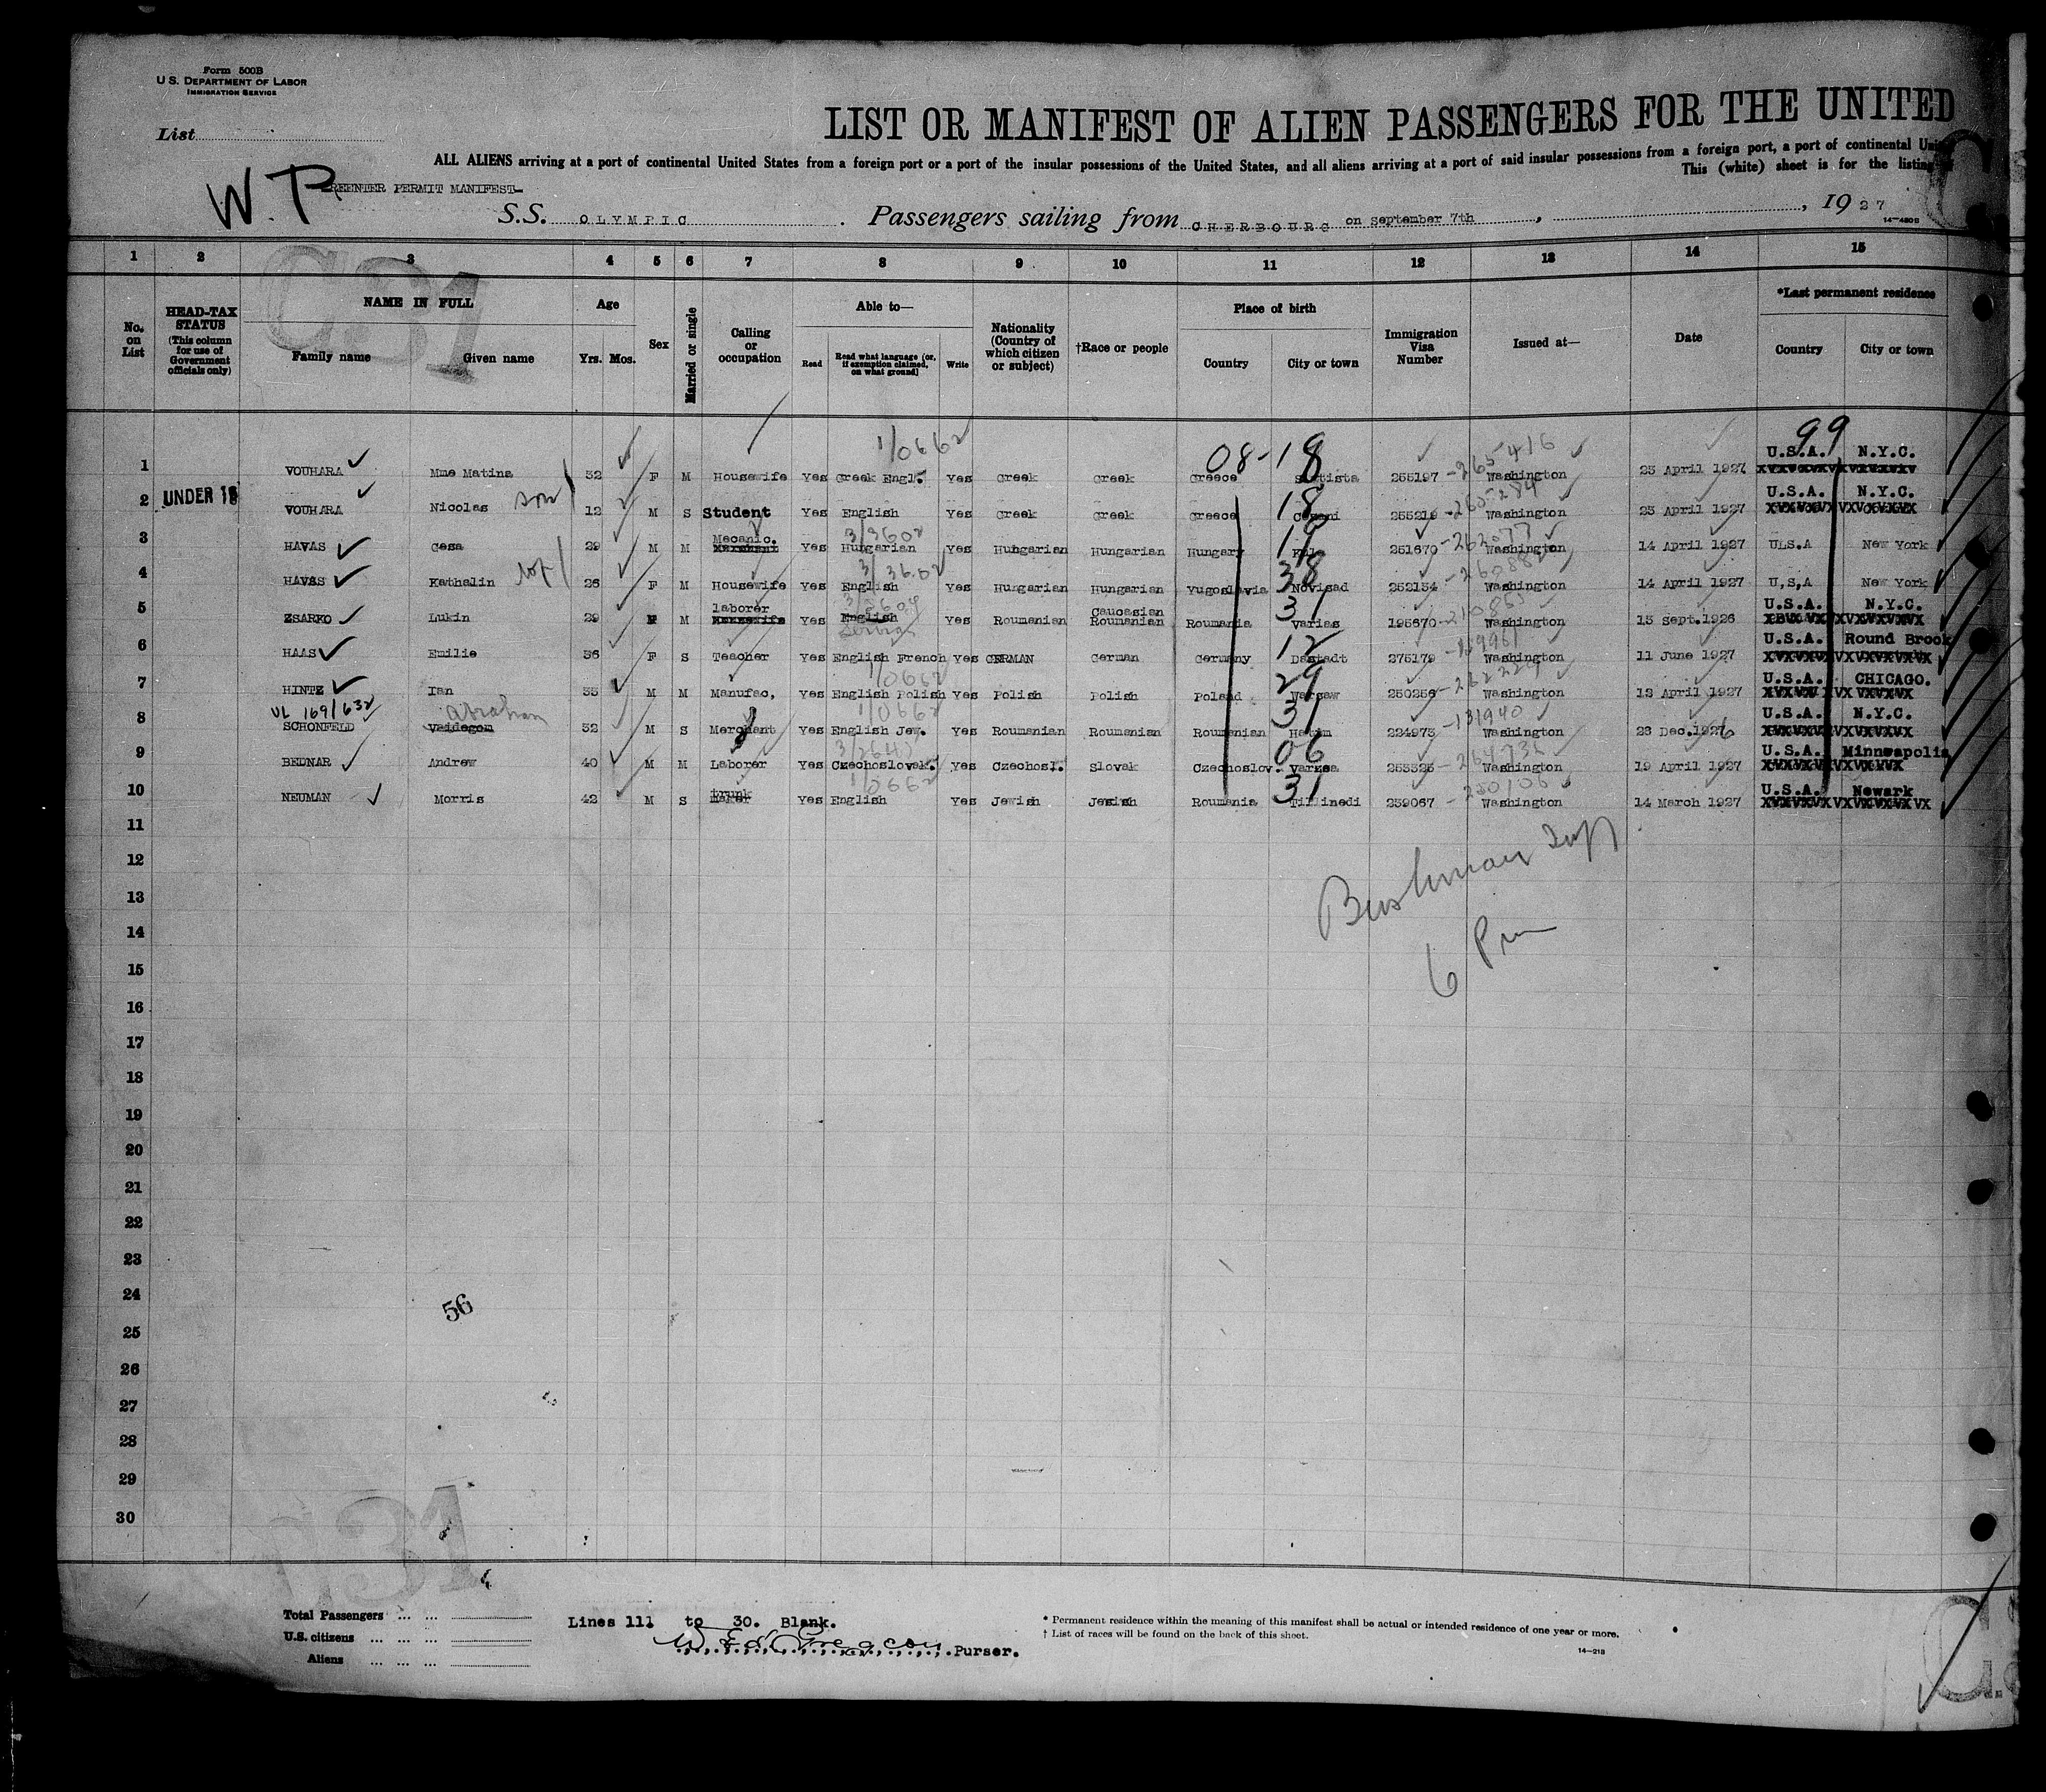 Form 500B
U.S. DEPARTMENT OF LABOR
IMMIGRATION SERVICE
List
LIST OR MANIFEST OF ALIEN PASSENGERS FOR THE UNITED
ALL ALIENS arriving at a port of continental United States from a foreign port or a port of the insular possessions of the United States, and all aliens arriving at a port of said insular possessions from a foreign port, a port of continental
This (white) sheet is for the listing
W.P. REENTER PERMIT MANIFEST
S.S. OLYMPIC. Passengers sailing from CHERBOURG on september 7th, 1927
1 2 3 4 5 6 7 8 9 10 11 12 13 14 15
No. on List HEAD-TAX STATUS (This column for use of Government officials only) NAME IN FULL Family name Given name Age Yrs. Mos. Sex Married or single Calling or occupation Able to— Read Read what language [or, if exemption claimed, on what ground] Write Nationality (Country of which citizen or subject) †Race or people Place of birth Country City or town Immigration Visa Number Issued at— Date *Last permanent residence Country City or town
1/0662 08-18 99
1 VOUHARA Mme Matina 32 F M Housewife Yes Greek Engl. Yes Greek Greek Greece 255197 -265416 Washington 23 April 1927 U.S.A. N.Y.C.
2 UNDER 16 VOUHARA Nicolas son 12 M S Student Yes English Yes Greek Greek Greece 18 255219 -265284 Washington 23 April 1927 U.S.A. N.Y.C.
3 HAVAS Gesa 29 M M Mecanic. Yes Hungarian 3/3602 Yes Hungarian Hungarian Hungary 19 251670 -262077 Washington 14 April 1927 ULS.A New York
4 HAVAS Kathalin wf 26 F M Housewife Yes English 3/3602 Yes Hungarian Hungarian Yugoslavia 38 Novisad 252134 Washington 14 April 1927 U,S,A New York
5 ZSARKO Lukin 29 M M laborer Yes English Yes Roumanian Caucasian Roumanian Roumania 31 Varias 195670 Washington 15 sept.1926 U.S.A. N.Y.C.
6 HAAS Emilie 36 F S Teacher Yes English French Yes GERMAN German Germany 12 Dastadt 275179 Washington 11 June 1927 U.S.A. Round Brook
7 HINTZ Ian 35 M M Manufac, Yes English Polish 1/0662 Yes Polish Polish Poland 29 Warsaw 250256 Washington 12 April 1927 U.S.A. CHICAGO.
VL 169/632 abraham
8 SCHONFELD Vaidegom 32 M S Merchant Yes English Jew. 1/0662 Yes Roumanian Roumanian Roumanian 31 224973 -131940 Washington 23 Dec.1926 U.S.A. N.Y.C.
9 BEDNAR Andrew 40 M M Laborer Yes Czechoslovak. Yes Czechosl. Slovak Czechoslov. 06 253325 -264736 Washington 19 April 1927 U.S.A. Minneapolis
10 NEUMAN Morris 42 M S trunk maker Yes English 1/0662 Yes Jewish Jewish Roumania 31 Tillinedi 239067 Washington 14 March 1927 U.S.A. Newark
11
12
13
Bushman Insp
14
6 Pm
15
16
17
18
19
20
21
22
23
24
56
25
26
27
28
29
30
Total Passengers
U.S. citizens
Aliens
Lines 111 to 30. Blank.
Purser.
* Permanent residence within the meaning of this manifest shall be actual or intended residence of one year or more.
† List of races will be found on the back of this sheet.
14-218